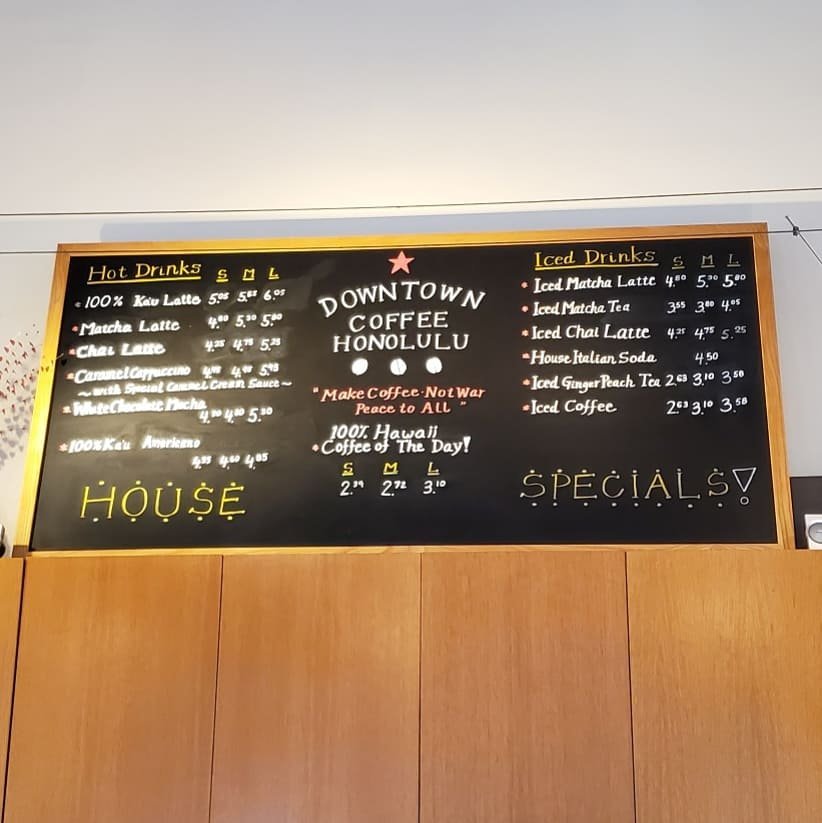 Hot Drinks S M L
100% Kau Latte 5.05 6.05
Matcha Latte 4.80 5.30 5.80
Chai Latte 4.25 4.75 5.25
Caramel Cappuccino
~ with Special Caramel Cream Sauce ~
White Chocolate Mocha
4.80 5.30
100% Ka'u Americano
4.85
HOUSE
DOWNTOWN
COFFEE
HONOLULU
"Make Coffee·Not War
Peace to All"
100% Hawaii
Coffee of The Day!
S M L
2.39 2.72 3.10
Iced Drinks S M L
Iced Matcha Latte 4.80 5.30 5.80
Iced Matcha Tea 3.55 3.80 4.05
Iced Chai Latte 4.25 4.75 5.25
House Italian Soda 4.50
Iced Ginger Peach Tea 2.63 3.10 3.58
Iced Coffee 2.63 3.10 3.58
SPECIALS!